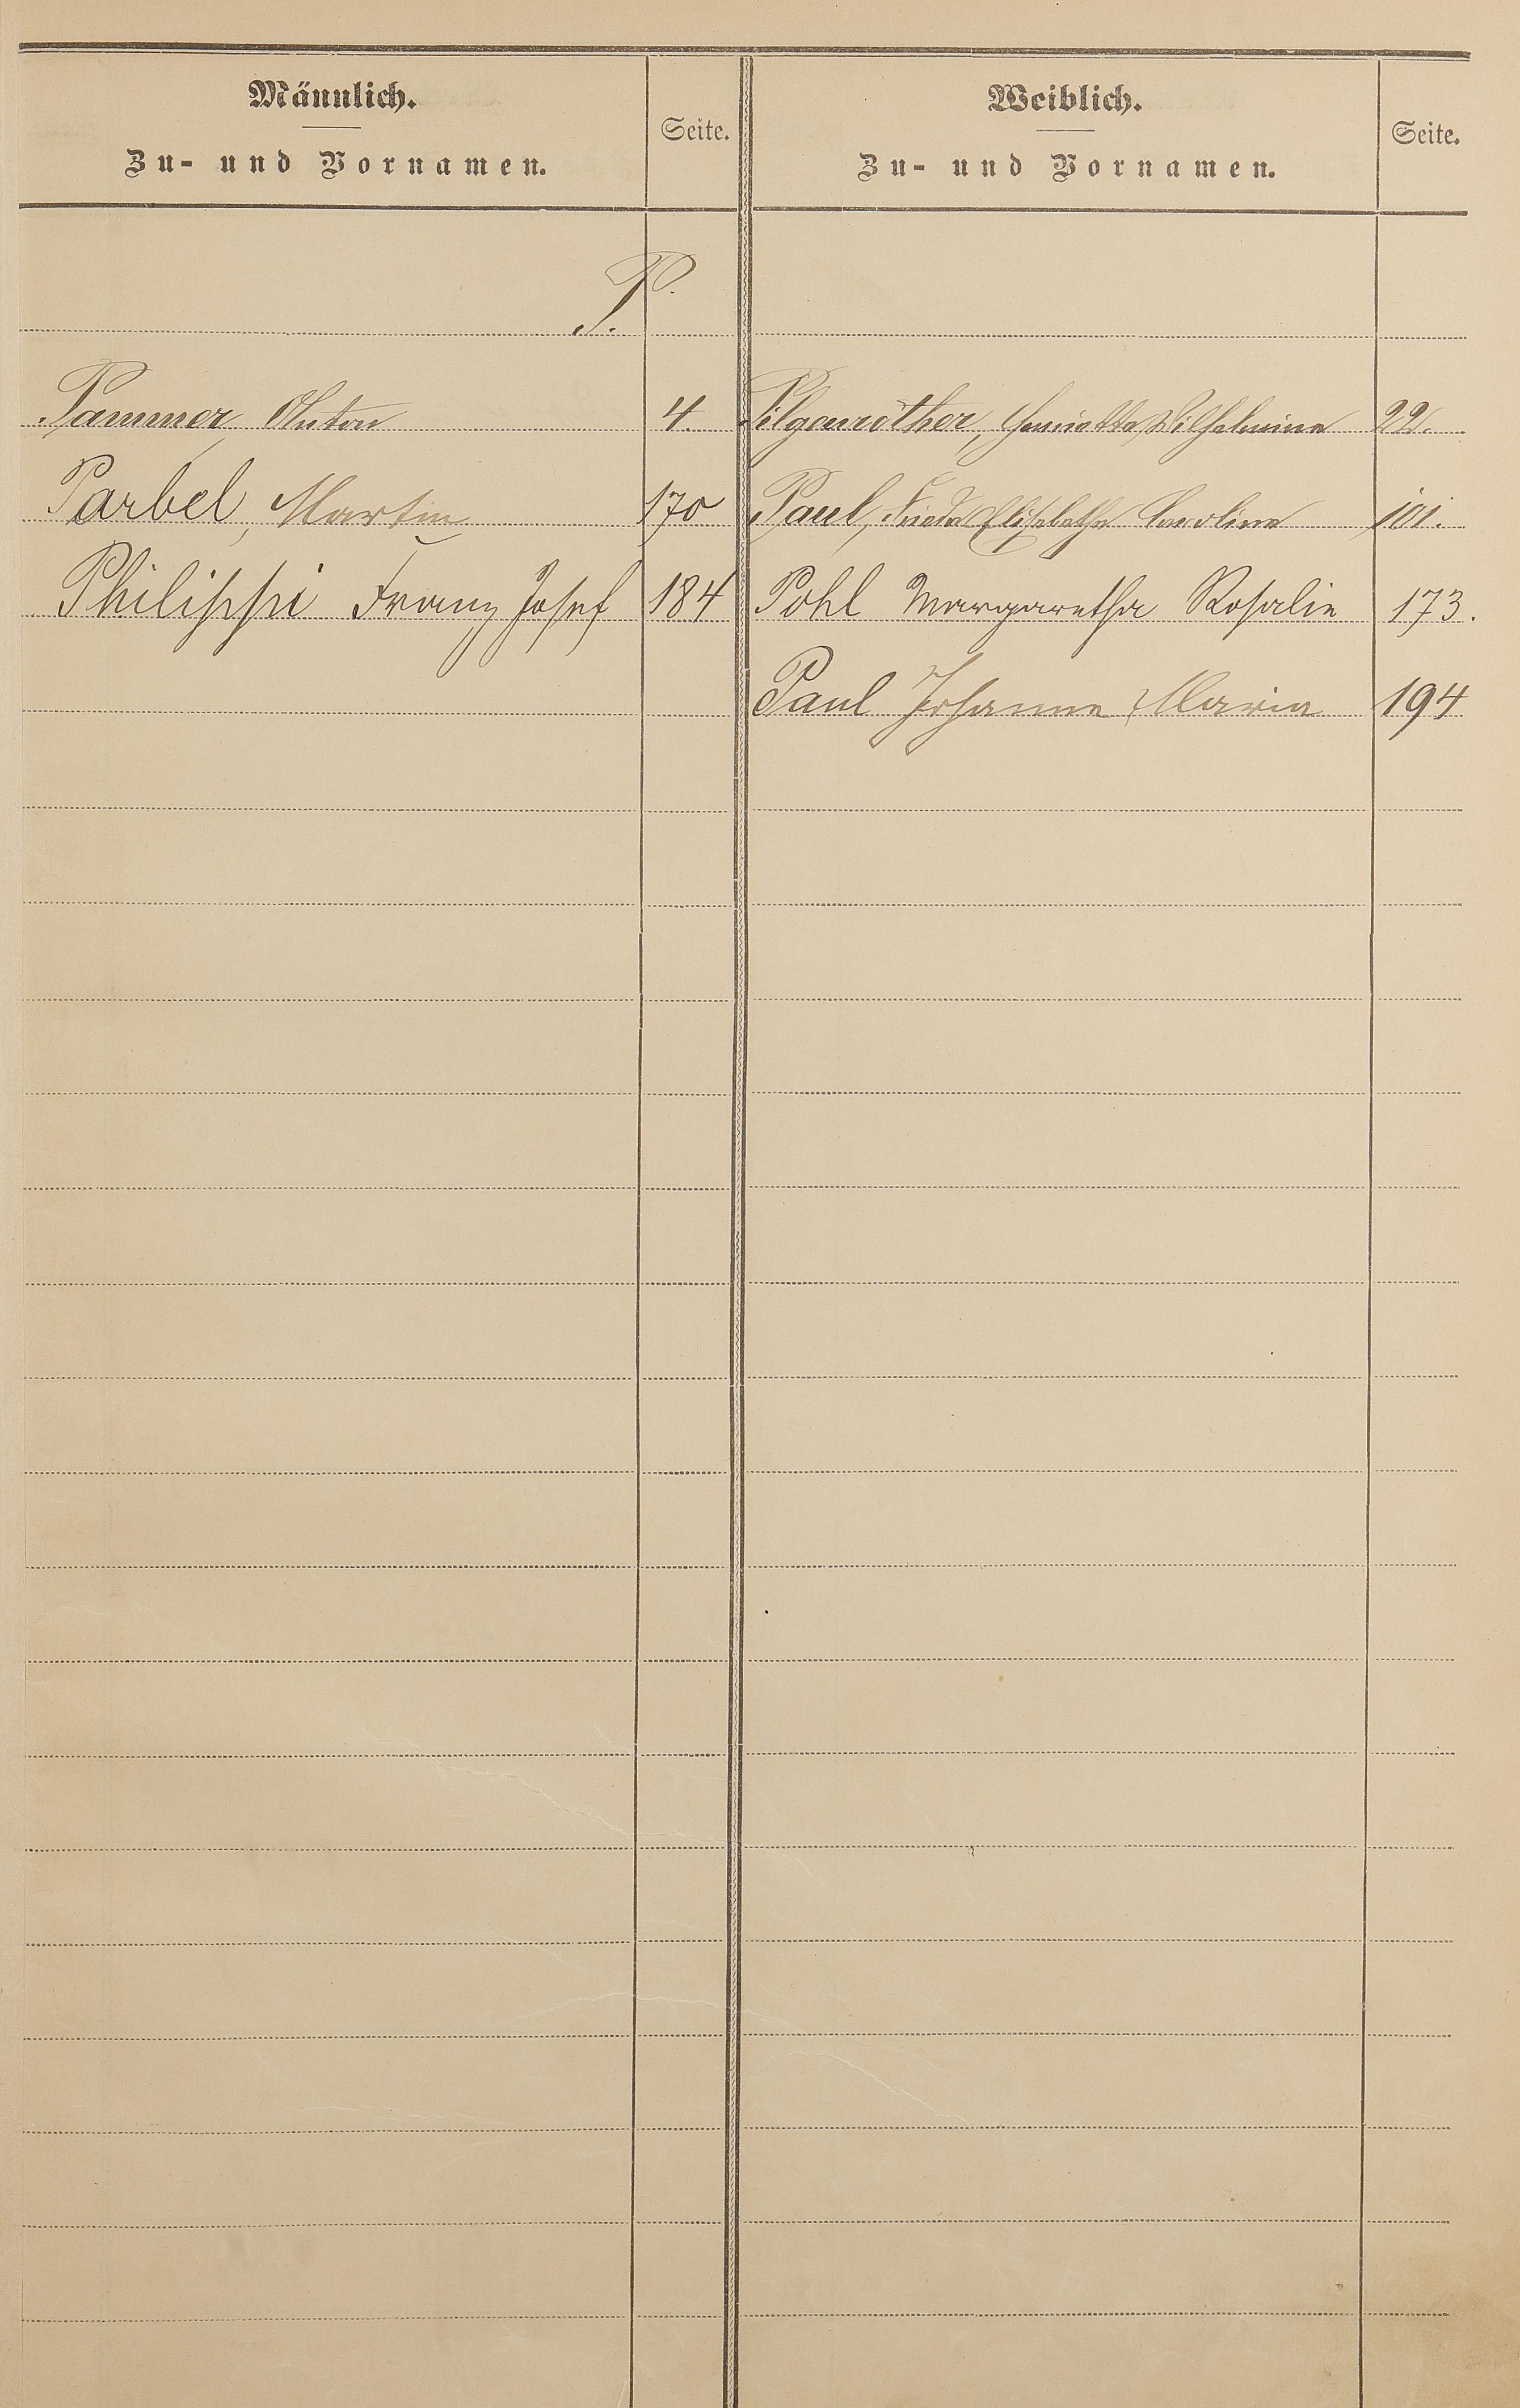 Männlich.
Zu- und Vornamen.
Seite.
Weiblich.
Zu- und Vornamen.
Seite.
P.
Pammer, Anton 4. Pilgenröther, Henriette Wilhelmine 22.
Parbel, Martin 170 Paul, Frieda Elisabetha Caroline 101.
Philippi Franz Josef 184 Pohl Margaretha Rosalie 173.
Paul Johanne Maria 194